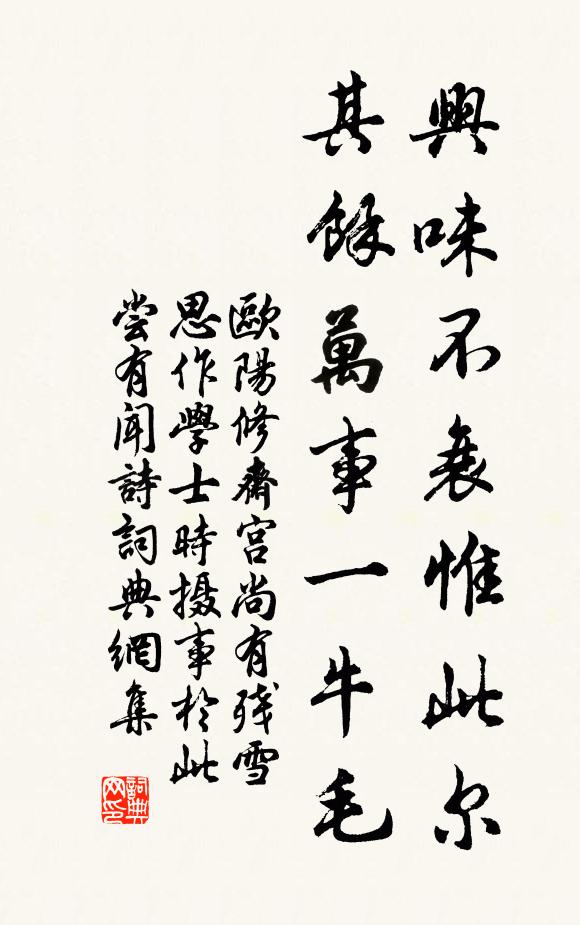 興味不衰惟此尔
其餘萬事一牛毛
歐陽修齋宮尚有殘雪
思作學士時摄事於此
尝有闻詩詞典網集
詞典网印